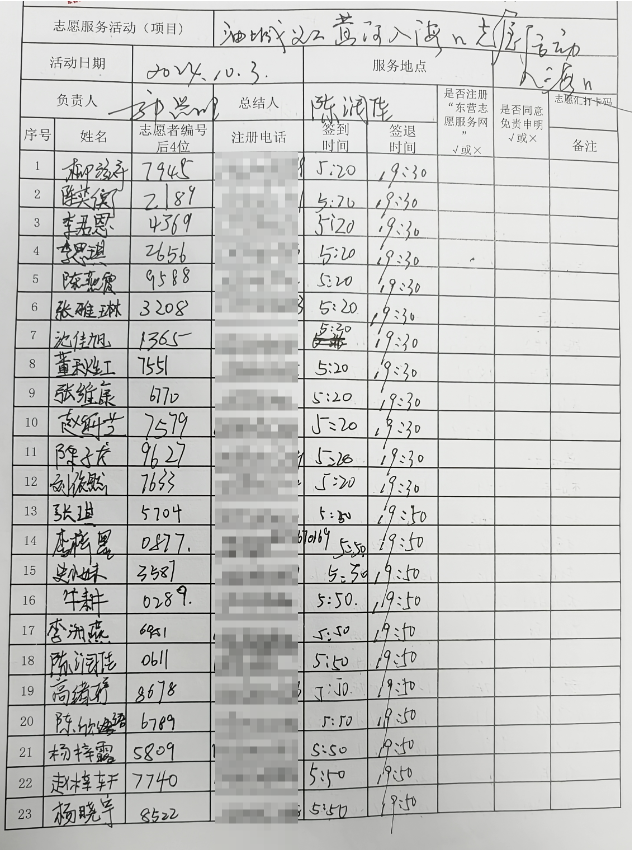 志愿服务活动（项目） 油城义工黄河入海口志愿活动
活动日期 2024.10.3. 服务地点 入海口
负责人 总结人 陈润佳 是否注册“东营志愿服务网”√或× 是否同意免责申明√或× 志愿汇打卡码
序号 姓名 志愿者编号后4位 注册电话 签到时间 签退时间 备注
1 7945 5:20 19:30
2 陈奕衡 2189 5:20 19:30
3 李君恩 4369 5:20 19:30
4 李思琪 2656 5:20 19:30
5 陈燕霞 9588 5:20 19:30
6 张雅琳 3208 5:20 19:30
7 池佳旭 1365 5:20 19:30
8 7551 5:20 19:30
9 张维康 6770 5:20 19:30
10 7579 5:20 19:30
11 陈子彦 9627 5:20 19:30
12 7633 5:20 19:30
13 张琪 5704 5:50 19:50
14 0877. 5:50 19:50
15 3587 5:50 19:50
16 牛耕 0289. 5:50. 19:50
17 李湘燕 6951 5:50 19:50
18 陈润佳 0611 5:50 19:50
19 高绪婷 8678 5:50. 19:50
20 6789 5:50 19:50
21 杨梓露 5809 5:50 19:50
22 赵梓轩 7740 5:50 19:50
23 杨晓宇 8522 5:50 19:50